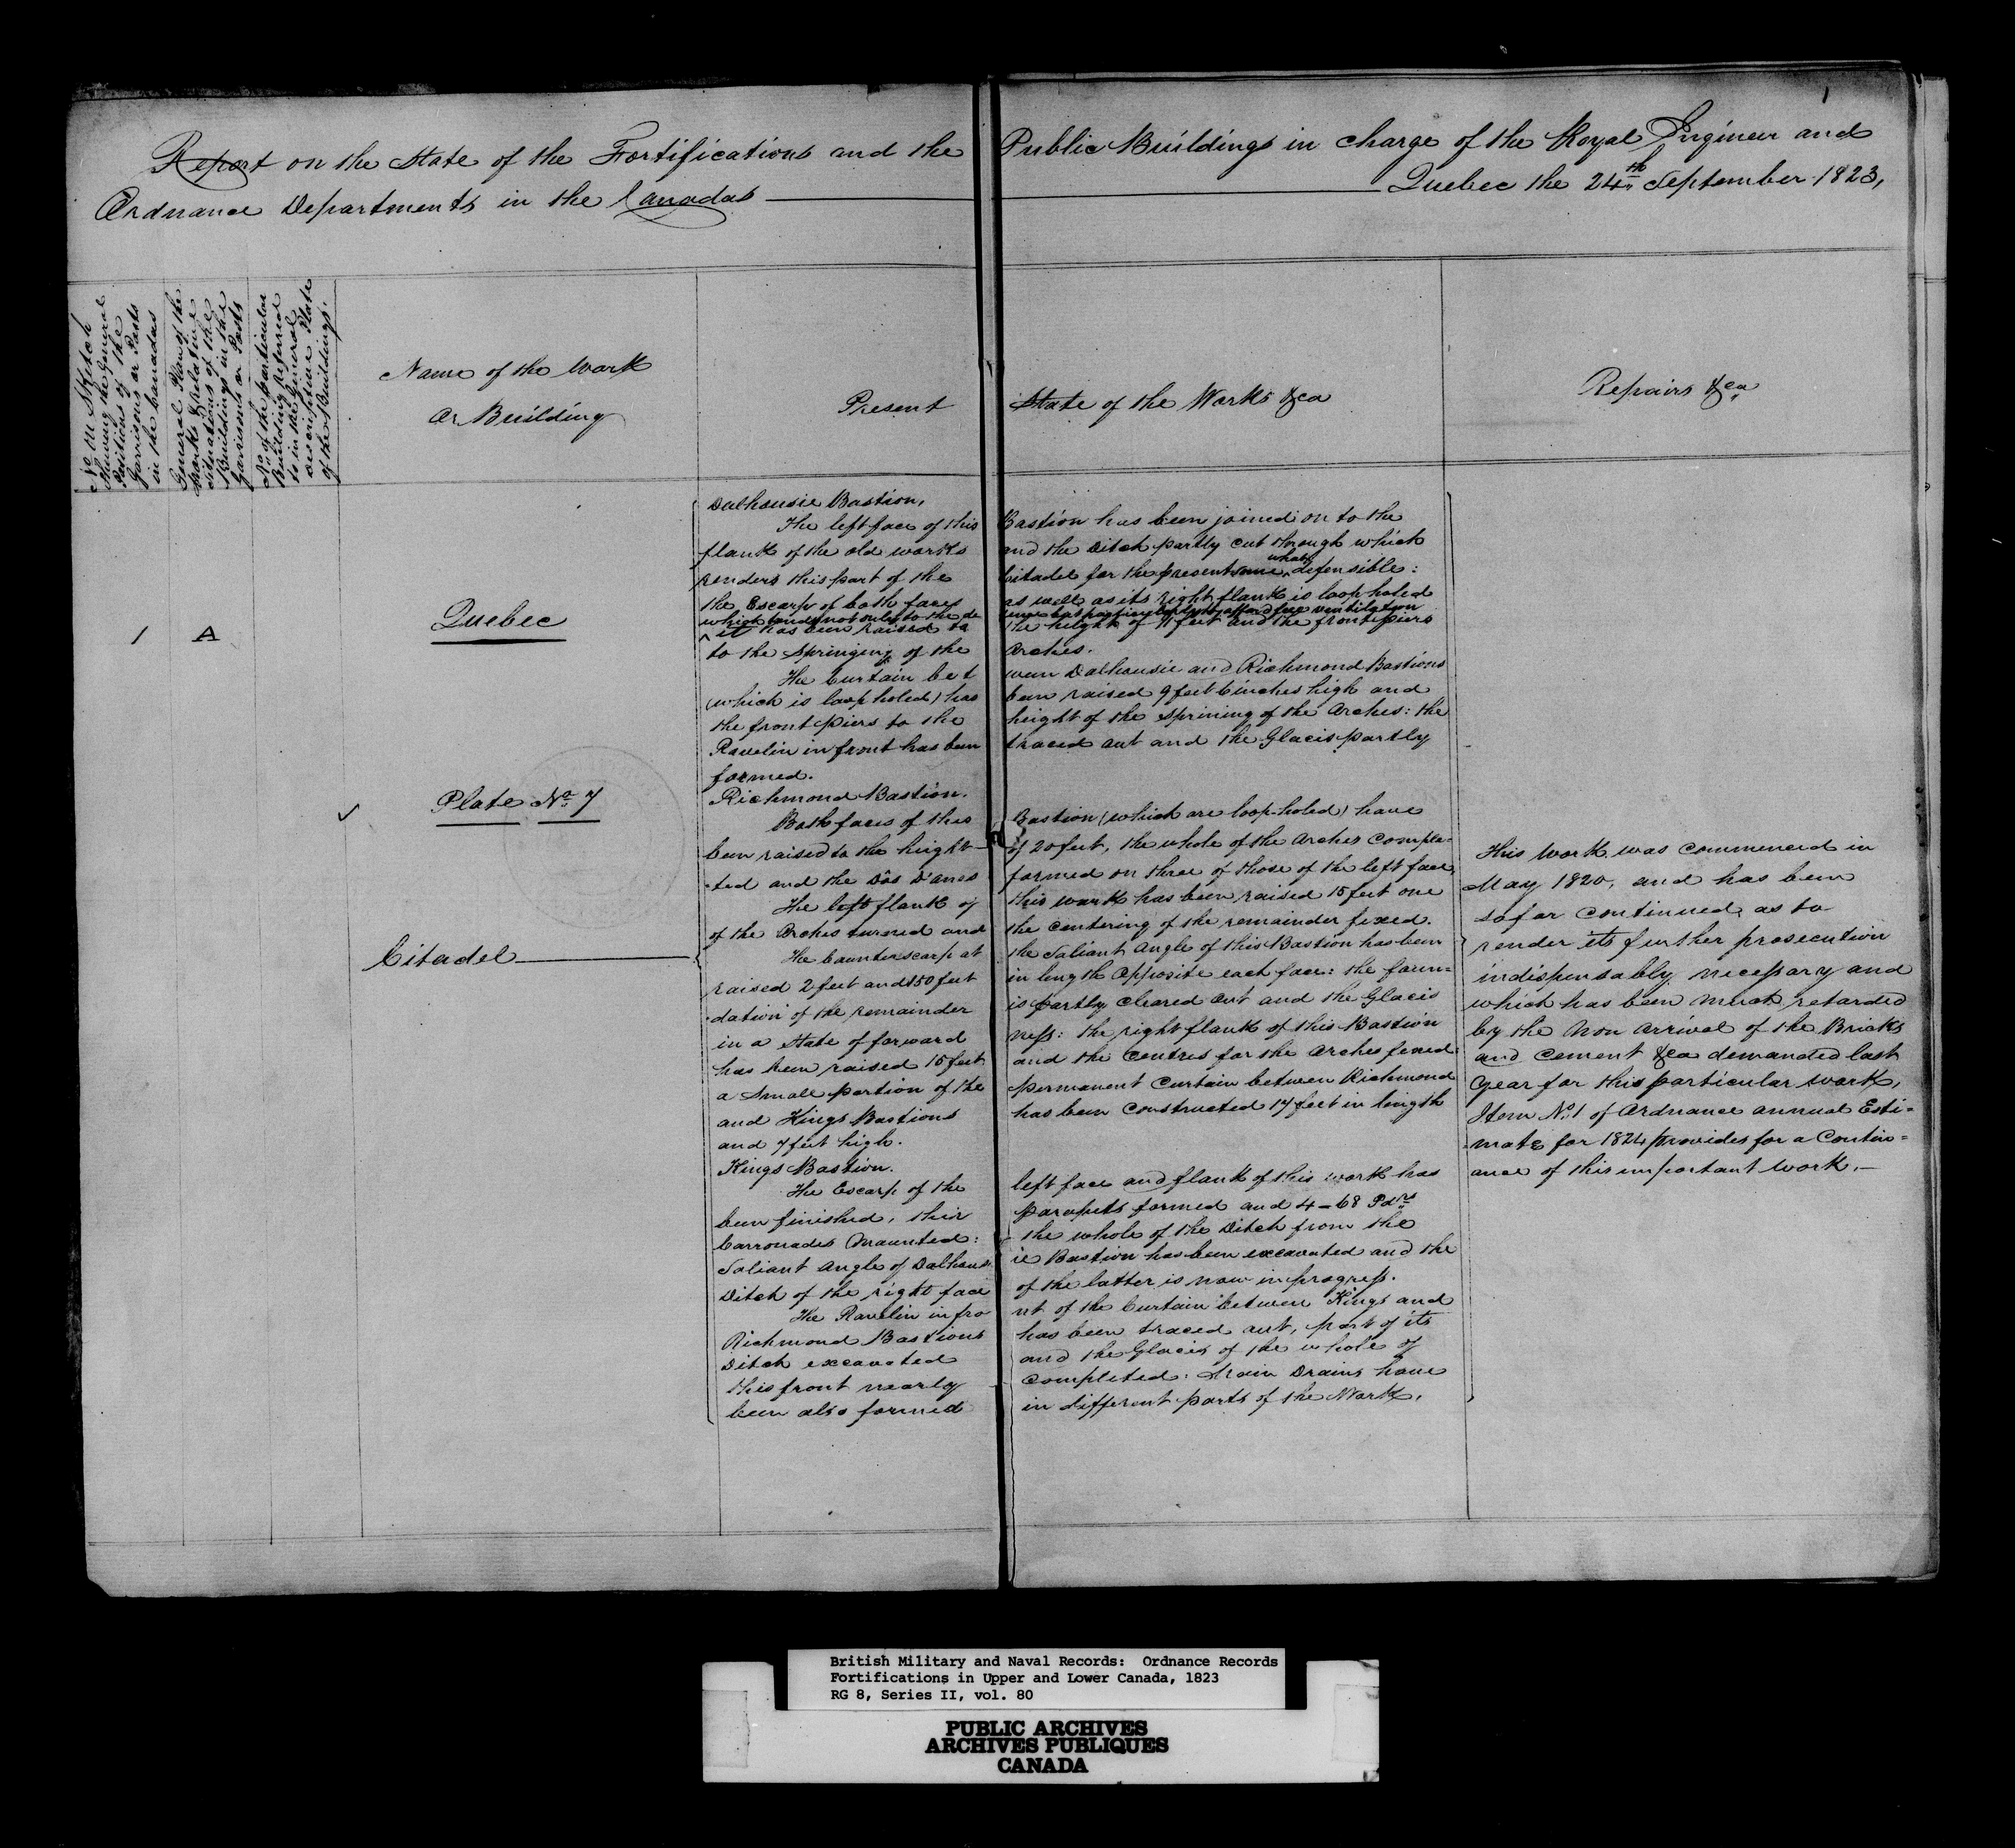 1
Report on the State of the Fortifications and the Public Buildings in charge of the Royal Engineer and
Ordnance Departments in the Canadas Quebec the 24th September 1823,
No on Sketch
Shewing the General
Positions of the
Garrisons or Posts
in the Canadas
General Plan of the
Works & relative
situations of the
Buildings in the
Garrisons or Posts
No of the particular
Building referred
to in the General
descriptive Plate
of the Buildings.
Name of the Work
Or Building
Present State of the Works &ca
Repairs &ca
1 A
Quebec
Plate No. 7
Citadel
Dalhousie Bastion,
The left face of this Bastion has been joined on to the
flank of the old works and the Ditch partly cut through which
renders this part of the Citadel for the present some what defensible:
the Escarp of both faces as well as its right flank is loop holed
which tends not only to the de fence but to afford free ventilation
it has been raised to the height of 11 feet and the front piers
to the Springing of the Arches.
The Curtain bet ween Dalhousie and Richmond Bastions
(which is loop holed) has been raised 9 feet 6 inches high and
the front piers to the height of the sprining of the Arches: the
Ravelin in front has been traced out and the Glacis partly
formed.
Richmond Bastion.
Both faces of this Bastion (which are loop-holed) have
been raised to the height of 20 feet, the whole of the Arches comple-
-ted and the Dos D'anes formed on three of those of the left face,
The left flank of this work has been raised 15 feet one
of the Arches turned and the centering of the remainder fixed.
The Counterscarp at the Saliant Angle of this Bastion has been
raised 2 feet and 150 feet in length opposite each face: the foun-
-dation of the remainder is partly cleared out and the Glacis
in a state of forward ness: the right flank of this Bastion
has been raised 15 feet and the Centres for the Arches fixed
a small portion of the permanent Curtain between Richmond
and Kings Bastions has been constructed 17 feet in length
and 7 feet high.
Kings Bastion.
The Escarp of the left face and flank of this work has
been finished, their parapets formed and 4-68 Pdrs
Carronades Mounted: the whole of the Ditch from the
Saliant Angle of Dalhous ie Bastion has been excavated and the
Ditch of the right face of the latter is now in progress.
The Ravelin in fro nt of the Curtain between Kings and
Richmond Bastions has been traced out, part of its
Ditch excavated and the Glacis of the whole of
this front nearly completed: Main Drains have
been also formed in different parts of the Work.
This Work was commenced in
May 1820, and has been
so far continued as to
render its further prosecution
indispensably necessary and
which has been much retarded
by the Non Arrival of the Bricks
and Cement &ca demanded last
Year for this particular work,
Item No. 1 of Ordnance Annual Esti-
-mate for 1824 provides for a Contin-
ance of this important work.—
British Military and Naval Records: Ordnance Records
Fortifications in Upper and Lower Canada, 1823
RG 8, Series II, vol. 80
PUBLIC ARCHIVES
ARCHIVES PUBLIQUES
CANADA